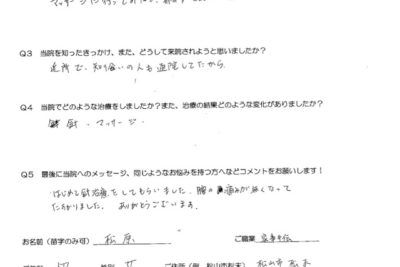 マッサージに行ってみたい
Q3 当院を知ったきっかけ、また、どうして来院されようと思いましたか？
近所で、知り合いの人も通院してたから
Q4 当院でどのような治療をしましたか？また、治療の結果どのような変化がありましたか？
針 ・マッサージ・
Q5 最後に当院へのメッセージ、同じようなお悩みを持つ方へなどコメントをお願いします！
はじめて針治療をしてもらいました。腰の痛みが無くなって
たすかりました。 ありがとうございます。
お名前（苗字のみ可） 松原 ご職業 家事手伝
性別 女 ご住所（例 松山市松末 松山市松末